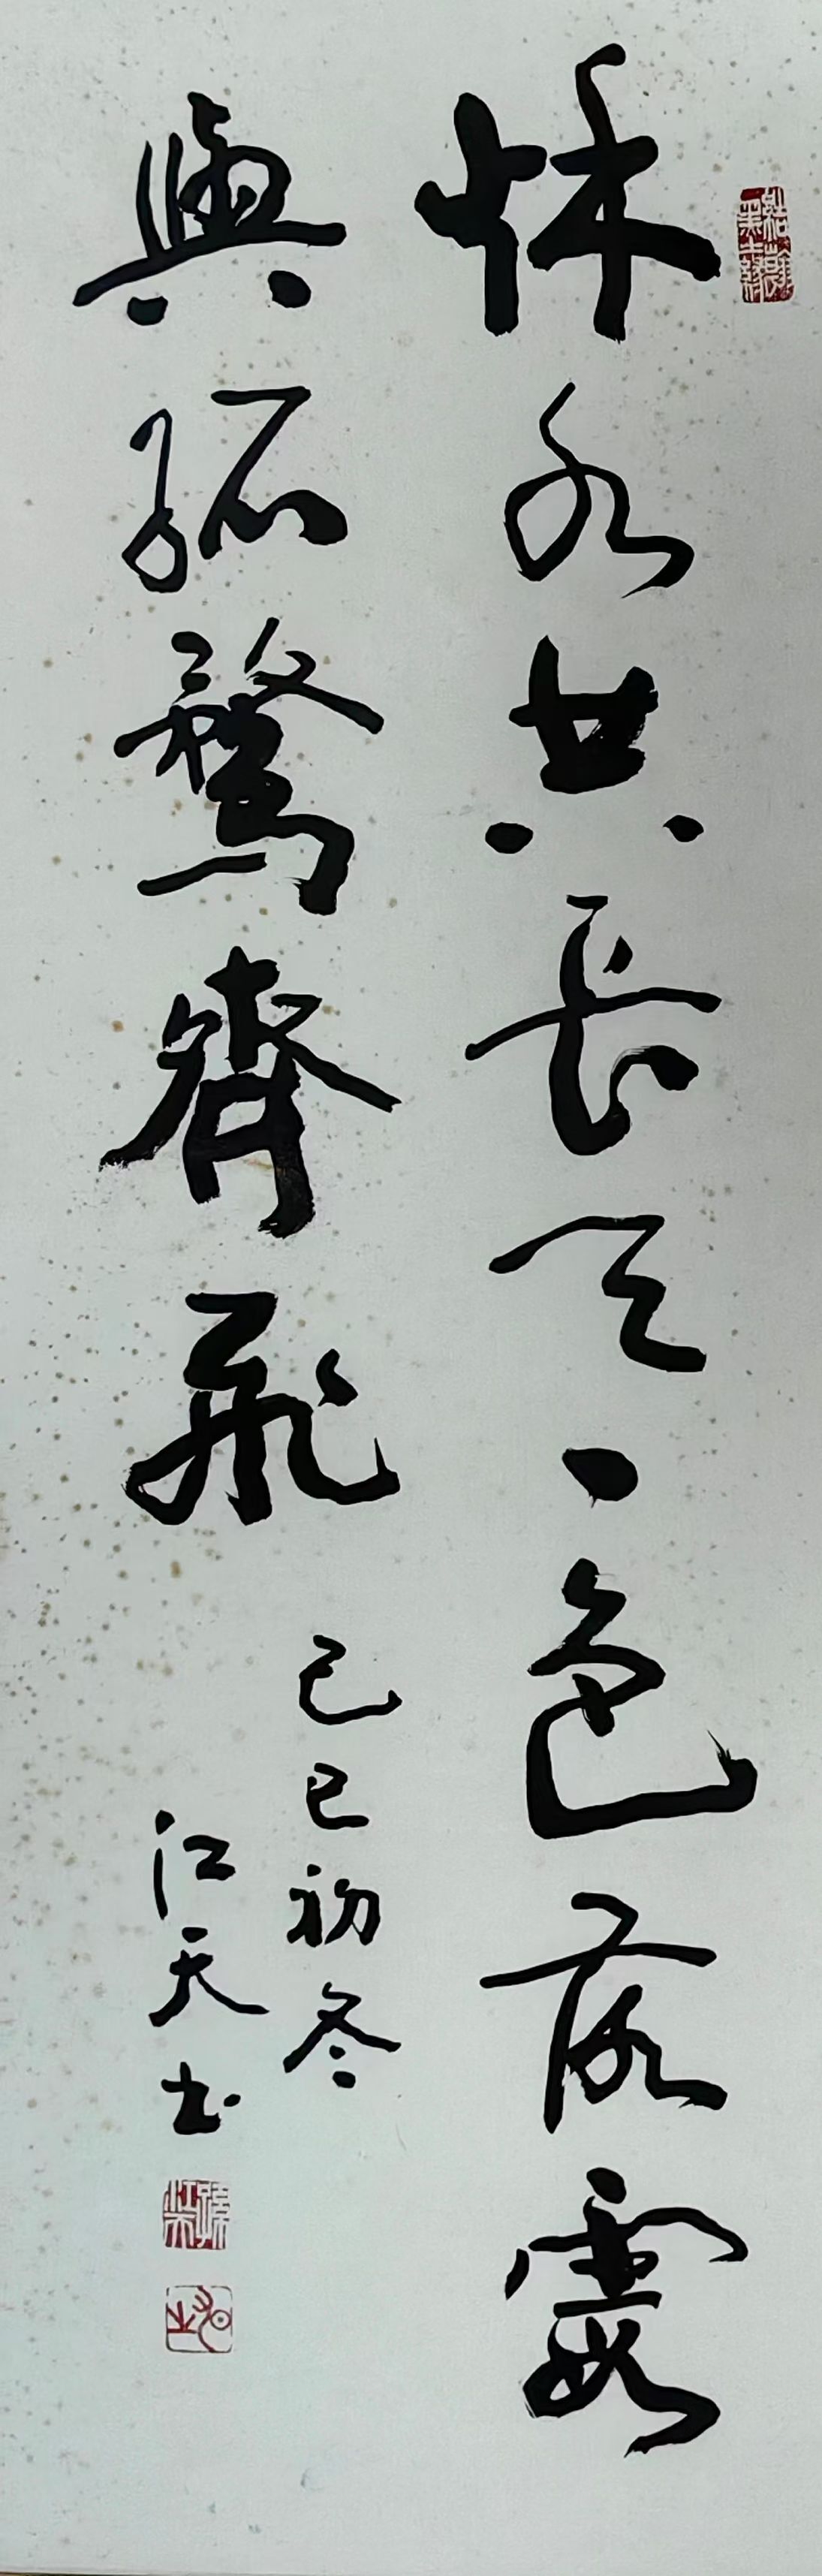 秌水共長天一色落霞
與孤鶩齊飛
己巳初冬
江天书